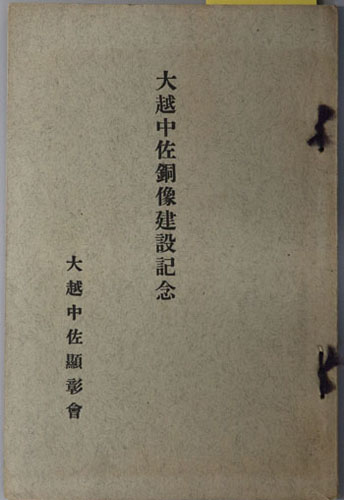 大越中佐銅像建設記念
大越中佐顯彰會